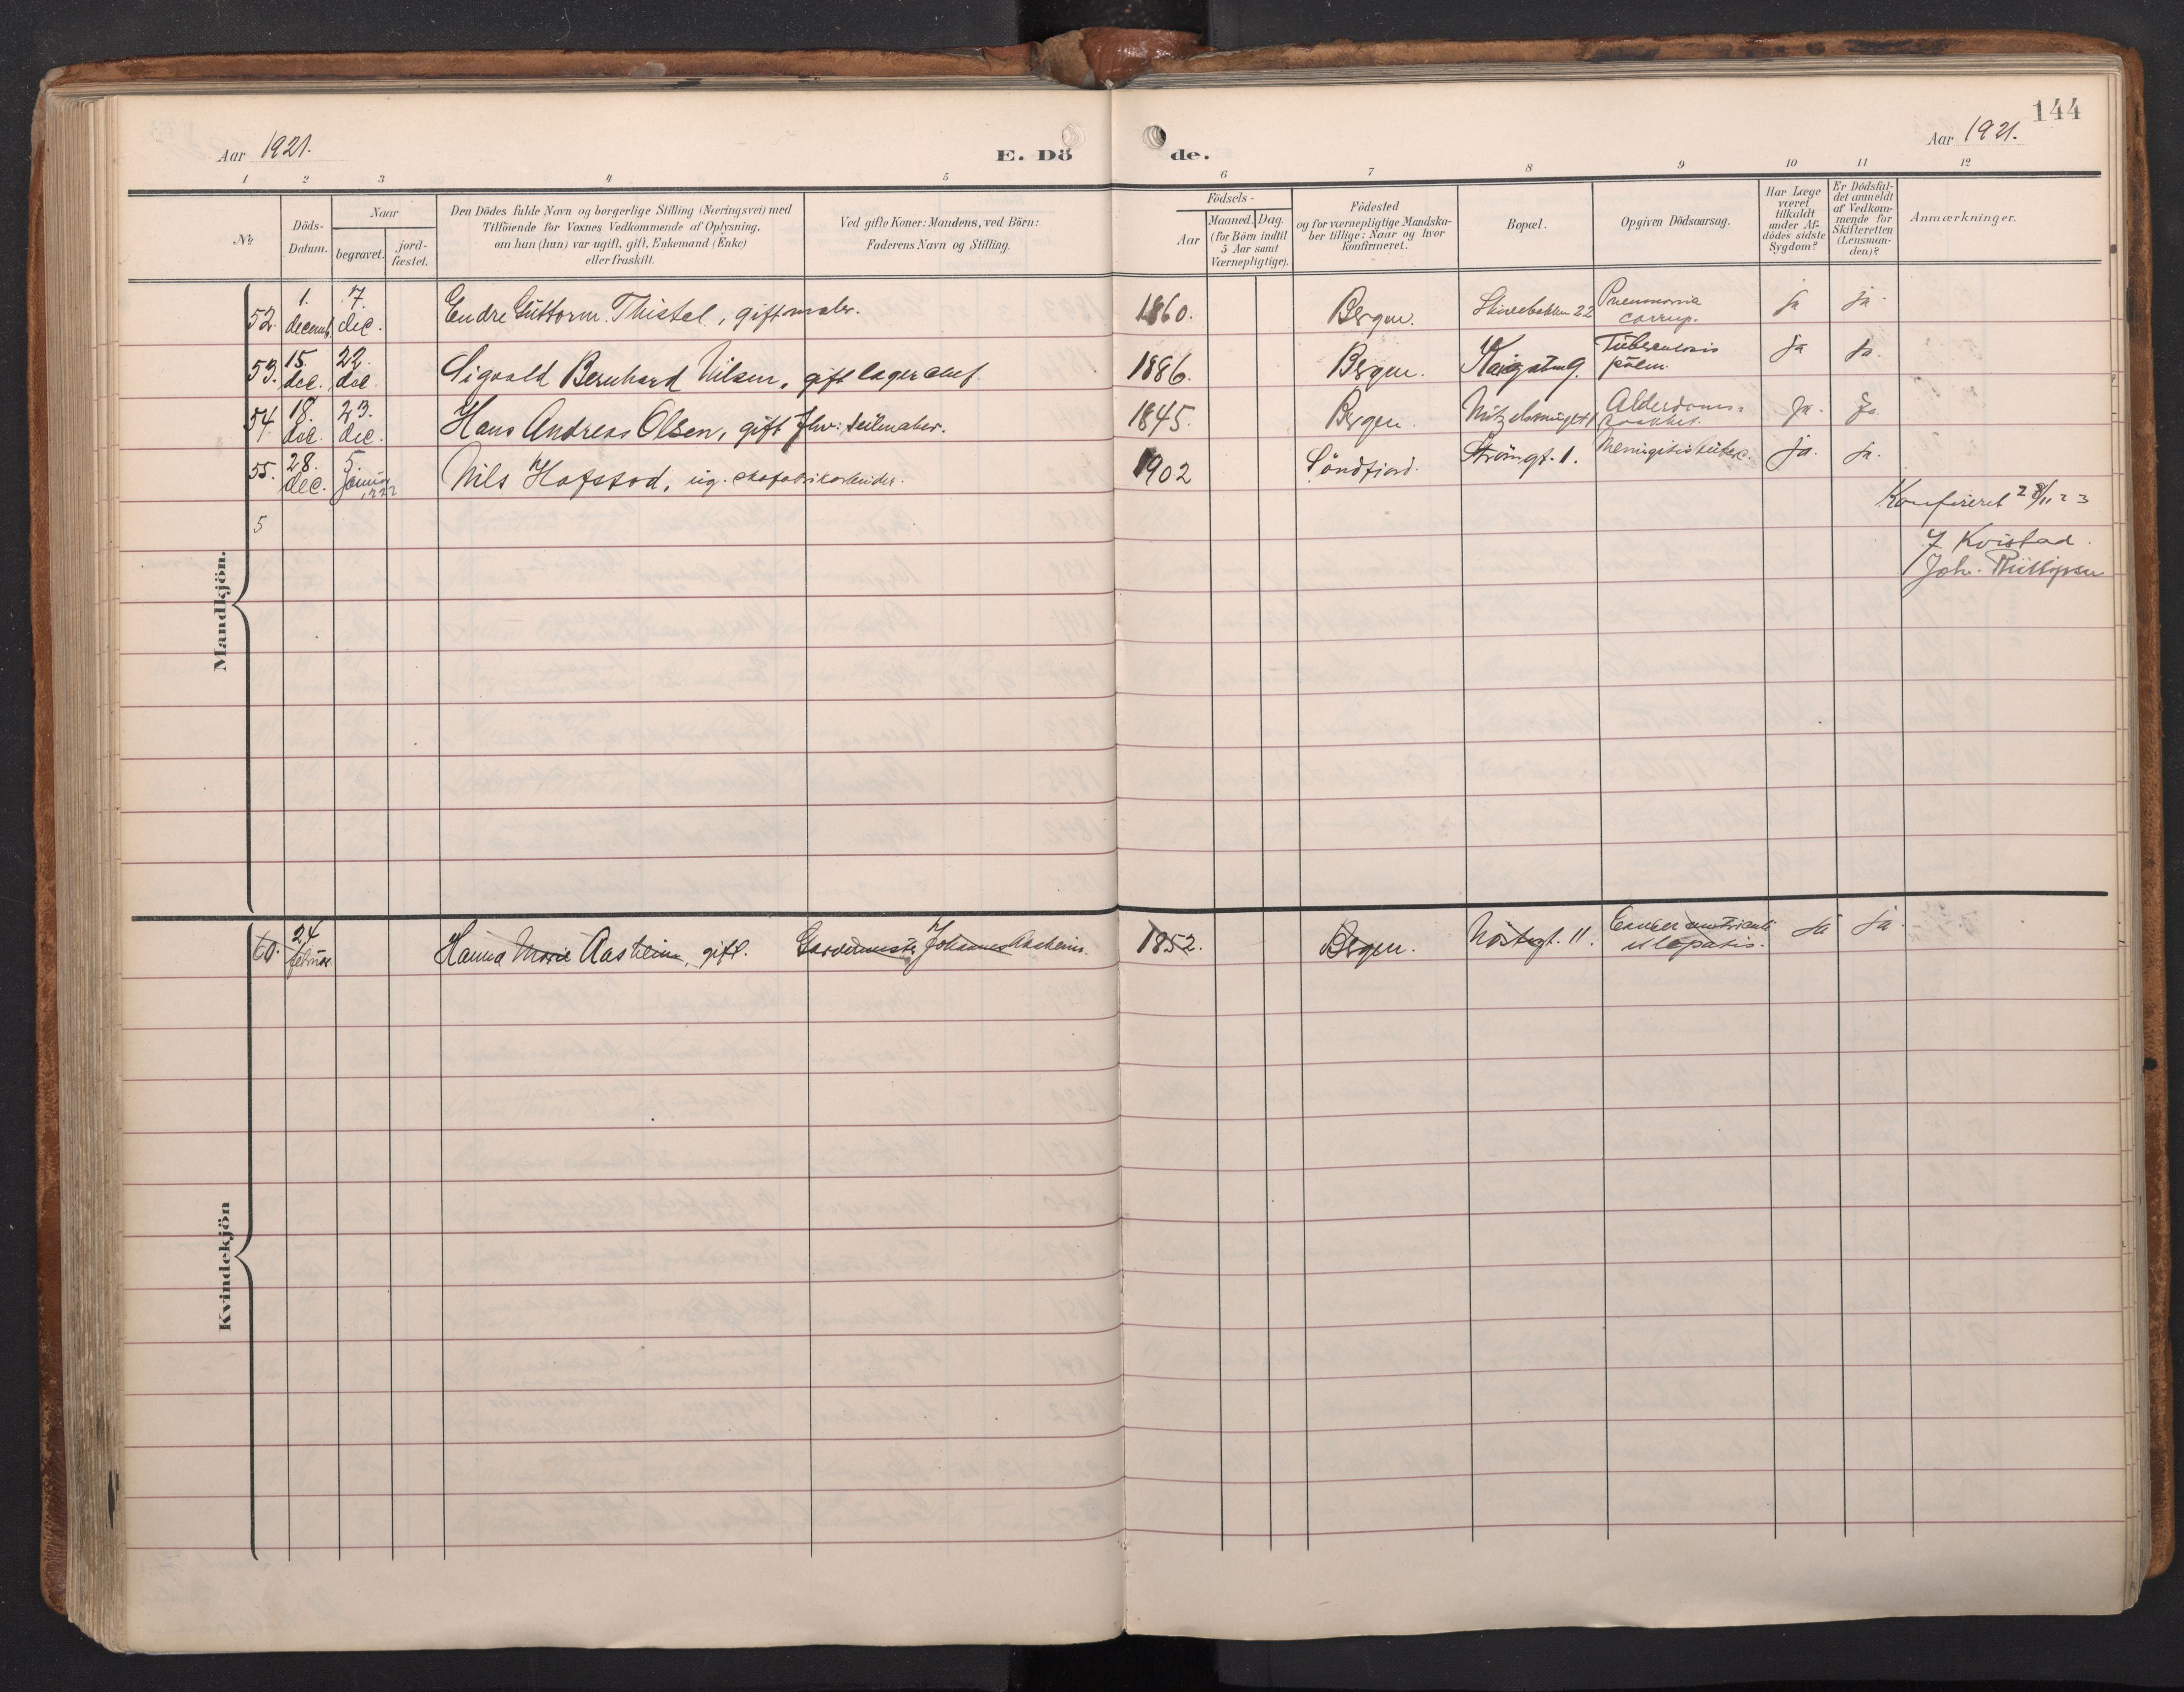 144
Aar 1921.
E. Dö de.
Aar 1921.
1 2 3 4 5 6 7 8 9 10 11 12
No
Döds-
Datum.
Naar
begravet.
jord-
fæstet.
Den Dödes fulde Navn og borgerlige Stilling (Næringsvei) med
Tilföiende for Voxnes Vedkommende af Oplysning,
om han (hun) var ugift, gift, Enkemand (Enke)
eller fraskilt.
Ved gifte Koner: Mandens, ved Börn:
Faderens Navn og Stilling.
Födsels-
Aar
Maaned. Dag.
(for Börn indtil
5 Aar samt
Værnepligtige).
Födested
og for værnepligtige Mandska-
ber tillige: Naar og hvor
konfirmeret.
Bopæl.
Opgiven Dödsaarsag.
Har Læge
været
tilkaldt
under Af-
dödes sidste
Sygdom?
Er Dödsfal-
det anmeldt
af Vedkom-
mende for
Skifteretten
(Lensman-
den)?
Anmærkninger.
Mandkjön.
52. 1. decemb. 7. dec. Endre Guttorm Thistel, gift maler. 1860. Bergen. 22 Pneumonia ja ja.
53. 15. dec. 22. dec. Sigvald Bernhard Nilsen, gift lager 1886. Bergen. 9. Tuberculosis pulm. ja ja.
54. 18. dec. 23. dec. Hans Andreas Olsen, gift fhv: seilmaker. 1845. Bergen. Alderdoms- Ja. Ja
55. 28. dec. 5. januar 1922 Nils Hafstad, ug. skofabrikarbeider. 1902 Söndfjord. Strömgt. 1. Meningitis tuberc. ja. ja.
5
Konfereret 28/11 23
J Kvistad.
Joh.
Kvindekjön
60. 24 februar Hanna Marie Aasheim, gift. Garvermester Johannes Aasheim. 1852. Bergen. Nöstegt. 11. Cancer ja ja.